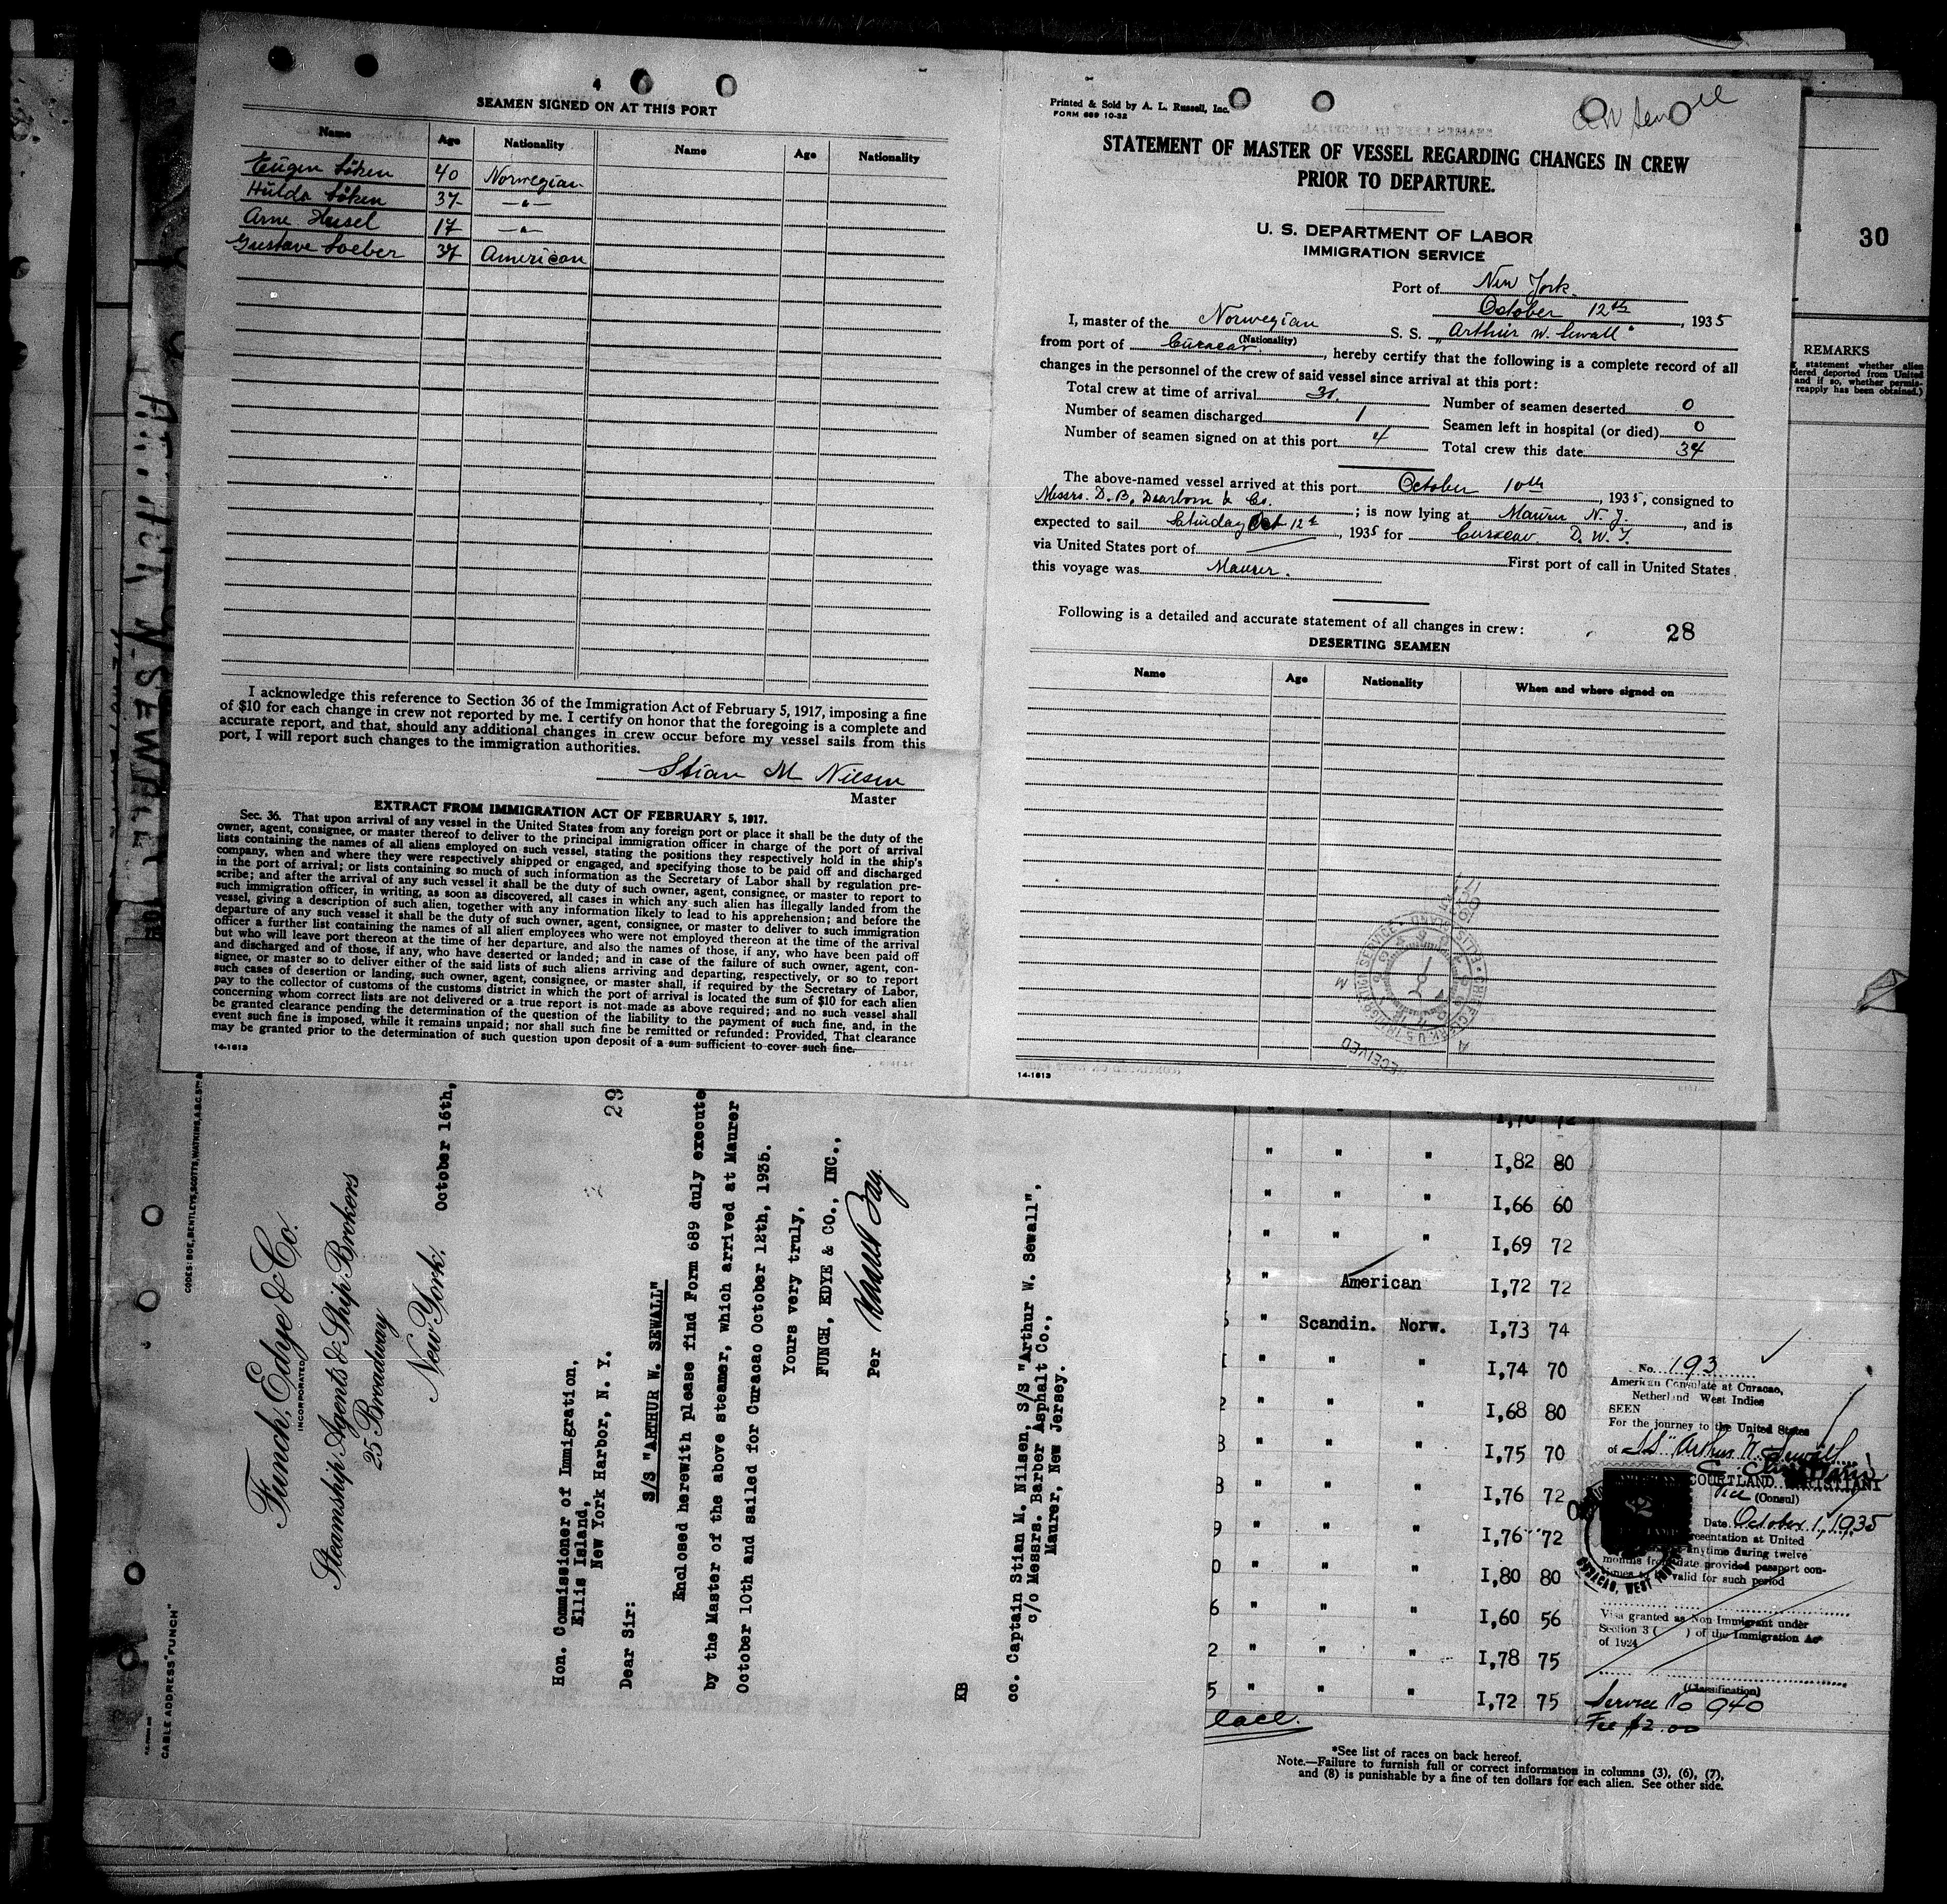 4
SEAMEN SIGNED ON AT THIS PORT
Name Age Nationality Name Age Nationality
Eugen Söken 40 Norwegian
Hulda Söken 37 -"-
Arne Hersel 17 -"-
Gustave Loeber 37 American
I acknowledge this reference to Section 36 of the Immigration Act of February 5, 1917, imposing a fine
of $10 for each change in crew not reported by me. I certify on honor that the foregoing is a complete and
accurate report, and that, should any additional changes in crew occur before my vessel sails from this
port, I will report such changes to the immigration authorities.
Stian M Nilsen
Master
EXTRACT FROM IMMIGRATION ACT OF FEBRUARY 5, 1917.
Sec. 36. That upon arrival of any vessel in the United States from any foreign port or place it shall be the duty of the
owner, agent, consignee, or master thereof to deliver to the principal immigration officer in charge of the port of arrival
lists containing the names of all aliens employed on such vessel, stating the positions they respectively hold in the ship's
company, when and where they were respectively shipped or engaged, and specifying those to be paid off and discharged
in the port of arrival; or lists containing so much of such information as the Secretary of Labor shall by regulation pre-
scribe; and after the arrival of any such vessel it shall be the duty of such owner, agent, consignee, or master to report to
such immigration officer, in writing, as soon as discovered, all cases in which any such alien has illegally landed from the
vessel, giving a description of such alien, together with any information likely to lead to his apprehension; and before the
departure of any such vessel it shall be the duty of such owner, agent, consignee, or master to deliver to such immigration
officer a further list containing the names of all alien employees who were not employed thereon at the time of the arrival
but who will leave port thereon at the time of her departure, and also the names of those, if any, who have been paid off
and discharged and of those, if any, who have deserted or landed; and in case of the failure of such owner, agent, con-
signee, or master so to deliver either of the said lists of such aliens arriving and departing, respectively, or so to report
such cases of desertion or landing, such owner, agent, consignee, or master shall, if required by the Secretary of Labor,
pay to the collector of customs of the customs district in which the port of arrival is located the sum of $10 for each alien
concerning whom correct lists are not delivered or a true report is not made as above required; and no such vessel shall
be granted clearance pending the determination of the question of the liability to the payment of such fine, and, in the
event such fine is imposed, while it remains unpaid; nor shall such fine be remitted or refunded: Provided, That clearance
may be granted prior to the determination of such question upon deposit of a sum sufficient to cover such fine.
14-1613
Printed & Sold by A. L. Russell, Inc.
FORM 689 10-32
A W Sewall
STATEMENT OF MASTER OF VESSEL REGARDING CHANGES IN CREW
PRIOR TO DEPARTURE.
U. S. DEPARTMENT OF LABOR
IMMIGRATION SERVICE
Port of New York.
October 12th, 1935
I, master of the Norwegian S. S. "Arthur W. Sewall"
(Nationality)
from port of Curacao, hereby certify that the following is a complete record of all
changes in the personnel of the crew of said vessel since arrival at this port:
Total crew at time of arrival 31. Number of seamen deserted 0
Number of seamen discharged 1 Seamen left in hospital (or died) 0
Number of seamen signed on at this port 4 Total crew this date 34
The above-named vessel arrived at this port October 10th, 1935, consigned to
Messrs. D. B. Dearborn & Co.; is now lying at Maurer N. J., and is
expected to sail Saturday Oct 12th, 1935 for Curacao. D. W. I.
via United States port of First port of call in United States
this voyage was Maurer.
Following is a detailed and accurate statement of all changes in crew:
28
DESERTING SEAMEN
Name Age Nationality When and where signed on
RECEIVED
14-1613
30
REMARKS
statement whether alien
rdered deported from United
and if so, whether permis-
reapply has been obtained.)
ARTHUR W. SEWALL
CODES: BOE, BENTLEYS, SCOTTS, WATKINS, A.B.C. 5
CABLE ADDRESS "FUNCH"
Funch, Edye & Co.
INCORPORATED
Steamship Agents & Ship Brokers
25 Broadway
New York.
October 16th,
29
Hon. Commissioner of Immigration,
Ellis Island,
New York Harbor, N. Y.
Dear Sir:
S/S "ARTHUR W. SEWALL"
Enclosed herewith please find Form 689 duly execute
by the Master of the above steamer, which arrived at Maurer
October 10th and sailed for Curacao October 12th, 1935.
Yours very truly,
FUNCH, EDYE & CO., INC.,
Per
KB
cc. Captain Stian M. Nilsen, S/S "Arthur W. Sewall",
c/o Messrs. Barber Asphalt Co.,
Maurer, New Jersey.
I,70 72
" " " I,82 80
" " " I,66 60
" " " I,69 72
" American I,72 72
" Scandin. Norw. I,73 74
" " " I,74 70
2 " " " I,68 80
3 " " " I,75 70
8 " " " I,76 72
9 " " " I,76 72
0 " " " I,80 80
6 " " " I,60 56
2 " " " I,78 75
5 " " " I,72 75
lace.
No. 193
American Consulate at Curacao,
Netherland West Indies
SEEN
For the journey to the United States
of SS "Arthur W. Sewall
COURTLAND CHRISTIANI
Vice (Consul)
Date October 1, 1935
resentation at United
anytime during twelve
months from date provided passport con-
valid for such period
CURACAO, WEST
Visa granted as Non Immigrant under
Section 3 ( ) of the Immigration Act
of 1924
(Classification)
Service No 940
Fee $2.00
*See list of races on back hereof.
Note.—Failure to furnish full or correct information in columns (3), (6), (7),
and (8) is punishable by a fine of ten dollars for each alien. See other side.